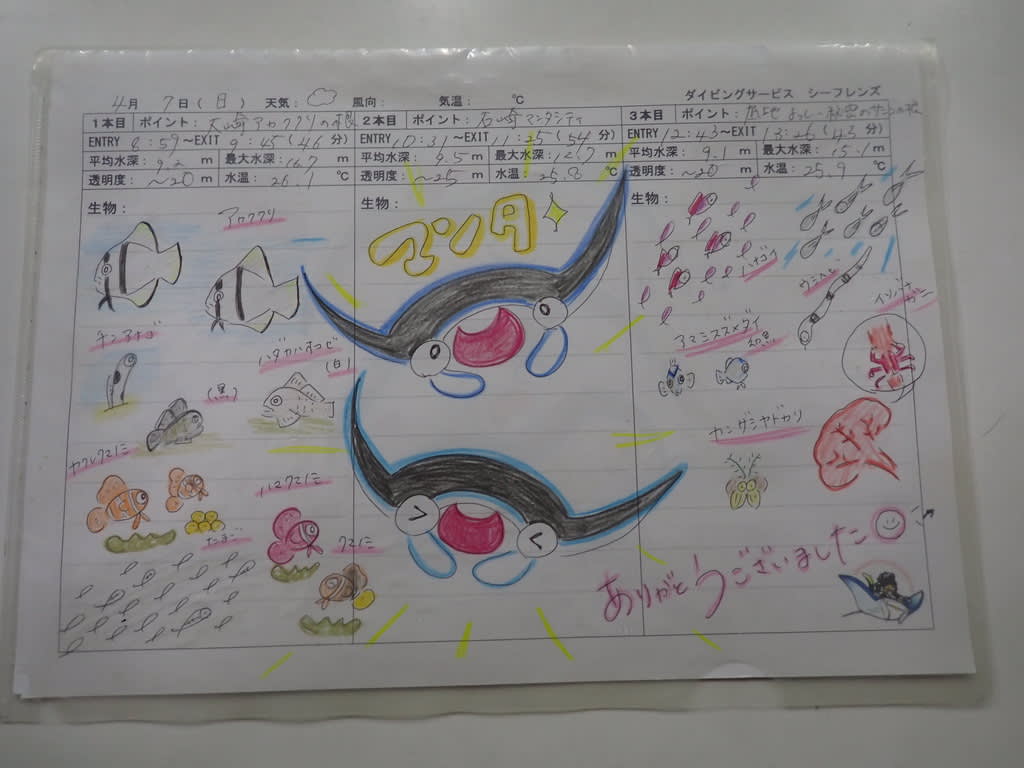 ダイビングサービス シーフレンズ
4月 7日(日) 天気: 風向: 気温: ℃
1本目 ポイント: 大崎アカククリの根
ENTRY 8:59～EXIT 9:45(46分)
平均水深: 9.2 m 最大水深: 16.7 m
透明度: ～20 m 水温: 26.1 ℃
生物:
アカククリ
チンアナゴ
ハダカハオコゼ
(白)
(黒)
カクレクマノミ
ハマクマノミ
たまご
クマノミ
2本目 ポイント: 石崎マンタシティ
ENTRY 10:31～EXIT 11:25(54分)
平均水深: 9.5 m 最大水深: 12.7 m
透明度: ～25 m 水温: 25.8 ℃
生物:
マンタ
3本目 ポイント:
ENTRY 12:43～EXIT 13:26(43分)
平均水深: 9.1 m 最大水深: 15.1 m
透明度: ～20 m 水温: 25.9 ℃
生物:
ハナゴイ
ウミヘビ
イソバナガニ
アマミスズメダイ
幼魚
カンザシヤドカリ
ありがとうございました